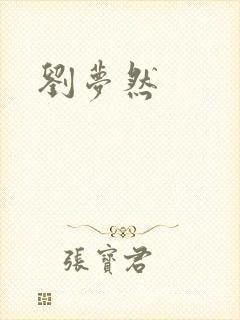 劉夢然
張寶君